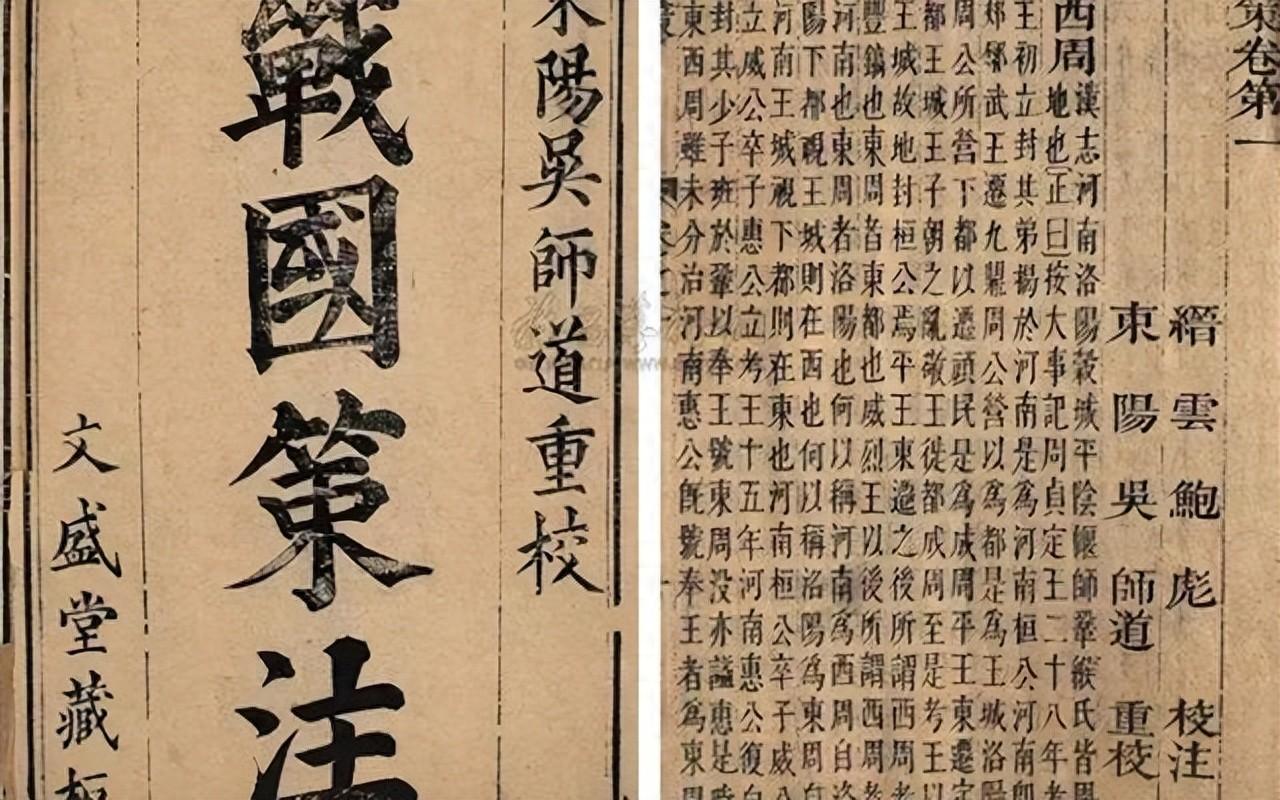 東陽吳師道重校
戰國策注
文盛堂藏板
策卷第一
縉雲鮑彪校注
東陽吳師道重校
西周漢志河南洛陽穀城平陰偃師鞏緱氏皆周
地也正曰按大事記周貞定王二十八年考
王初立封其弟揚於河南是為河南桓公河南即
郟鄏武王遷九鼎周公營以為都是為王城洛陽
周公所營下都以遷頑民是為成周平王東遷定
都王城王子朝之亂敬王徙都成周至是考王以
王城故地封桓公焉平王東遷之後所謂西周者
豐鎬也東周者東都也威烈王以後所謂西周者
河南也東周者洛陽也何以稱河南為西周自洛
陽下都視王城則在西也何以稱洛陽為東周自
河南王城視下都則在東也河南桓公卒子威公
立威公卒子惠公立考王十五年河南惠公復自
封其少子班於鞏以奉王號東周没亦諡惠是時
東西周雖未分治河南惠公旣號奉王者為東